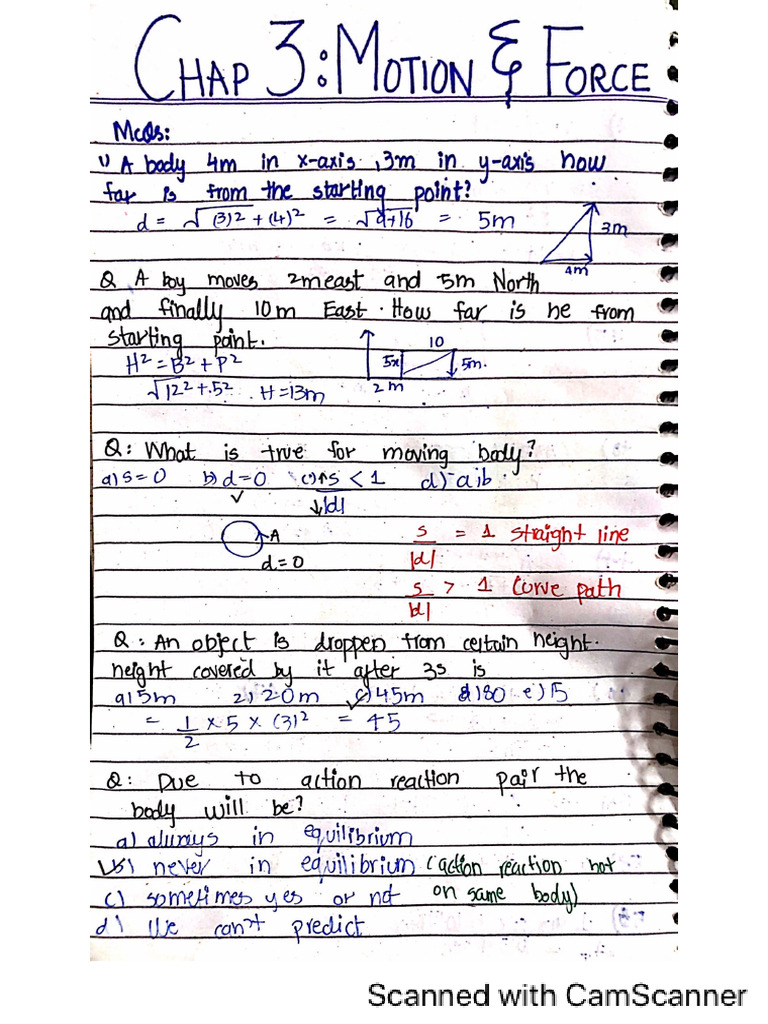 CHAP 3: MOTION & FORCE
McQs:
1) A body 4m in x-axis, 3m in y-axis how
far is from the starting point?
d = √(3)² + (4)² = √9+16 = 5m
3m
4m
Q A boy moves 2m east and 5m North
and finally 10m East. How far is he from
starting point.
10
H² = B² + P²
5m.
√12² + 5² . H = 13m
2m
Q: What is true for moving body?
a) s=0 b) d=0 c) s < 1 d) a,b
|d|
A
d=0
s/|d| = 1 straight line
s/|d| > 1 Curve path
Q: An object is droppen from certain height.
height covered by it after 3s is
a) 5m 2) 20m c) 45m d) 80 e) 15
= 1/2 × 5 × (3)² = 45
Q: Due to action reaction pair the
body will be?
a) always in equilibrium
b) never in equilibrium (action reaction not
c) sometimes yes or not on same body)
d) We can't predict
Scanned with CamScanner